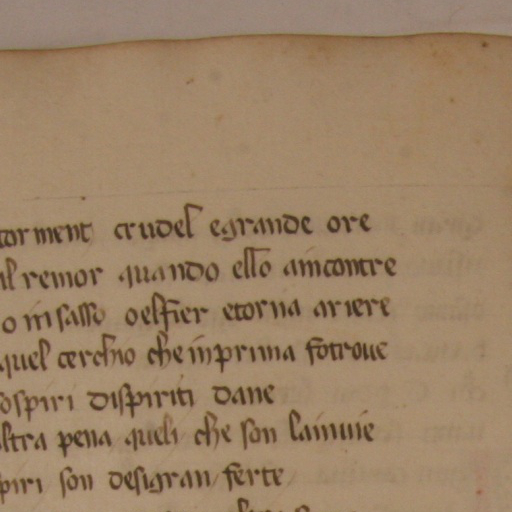 torment crudel egrande ore
al remor quando ello amcontre
o insasso oelfier etorna ariere
quel cerchio che inprima fotroue
ospiri dispiriti dane
altra pena queli che son lainuie
piri son desigran ferte